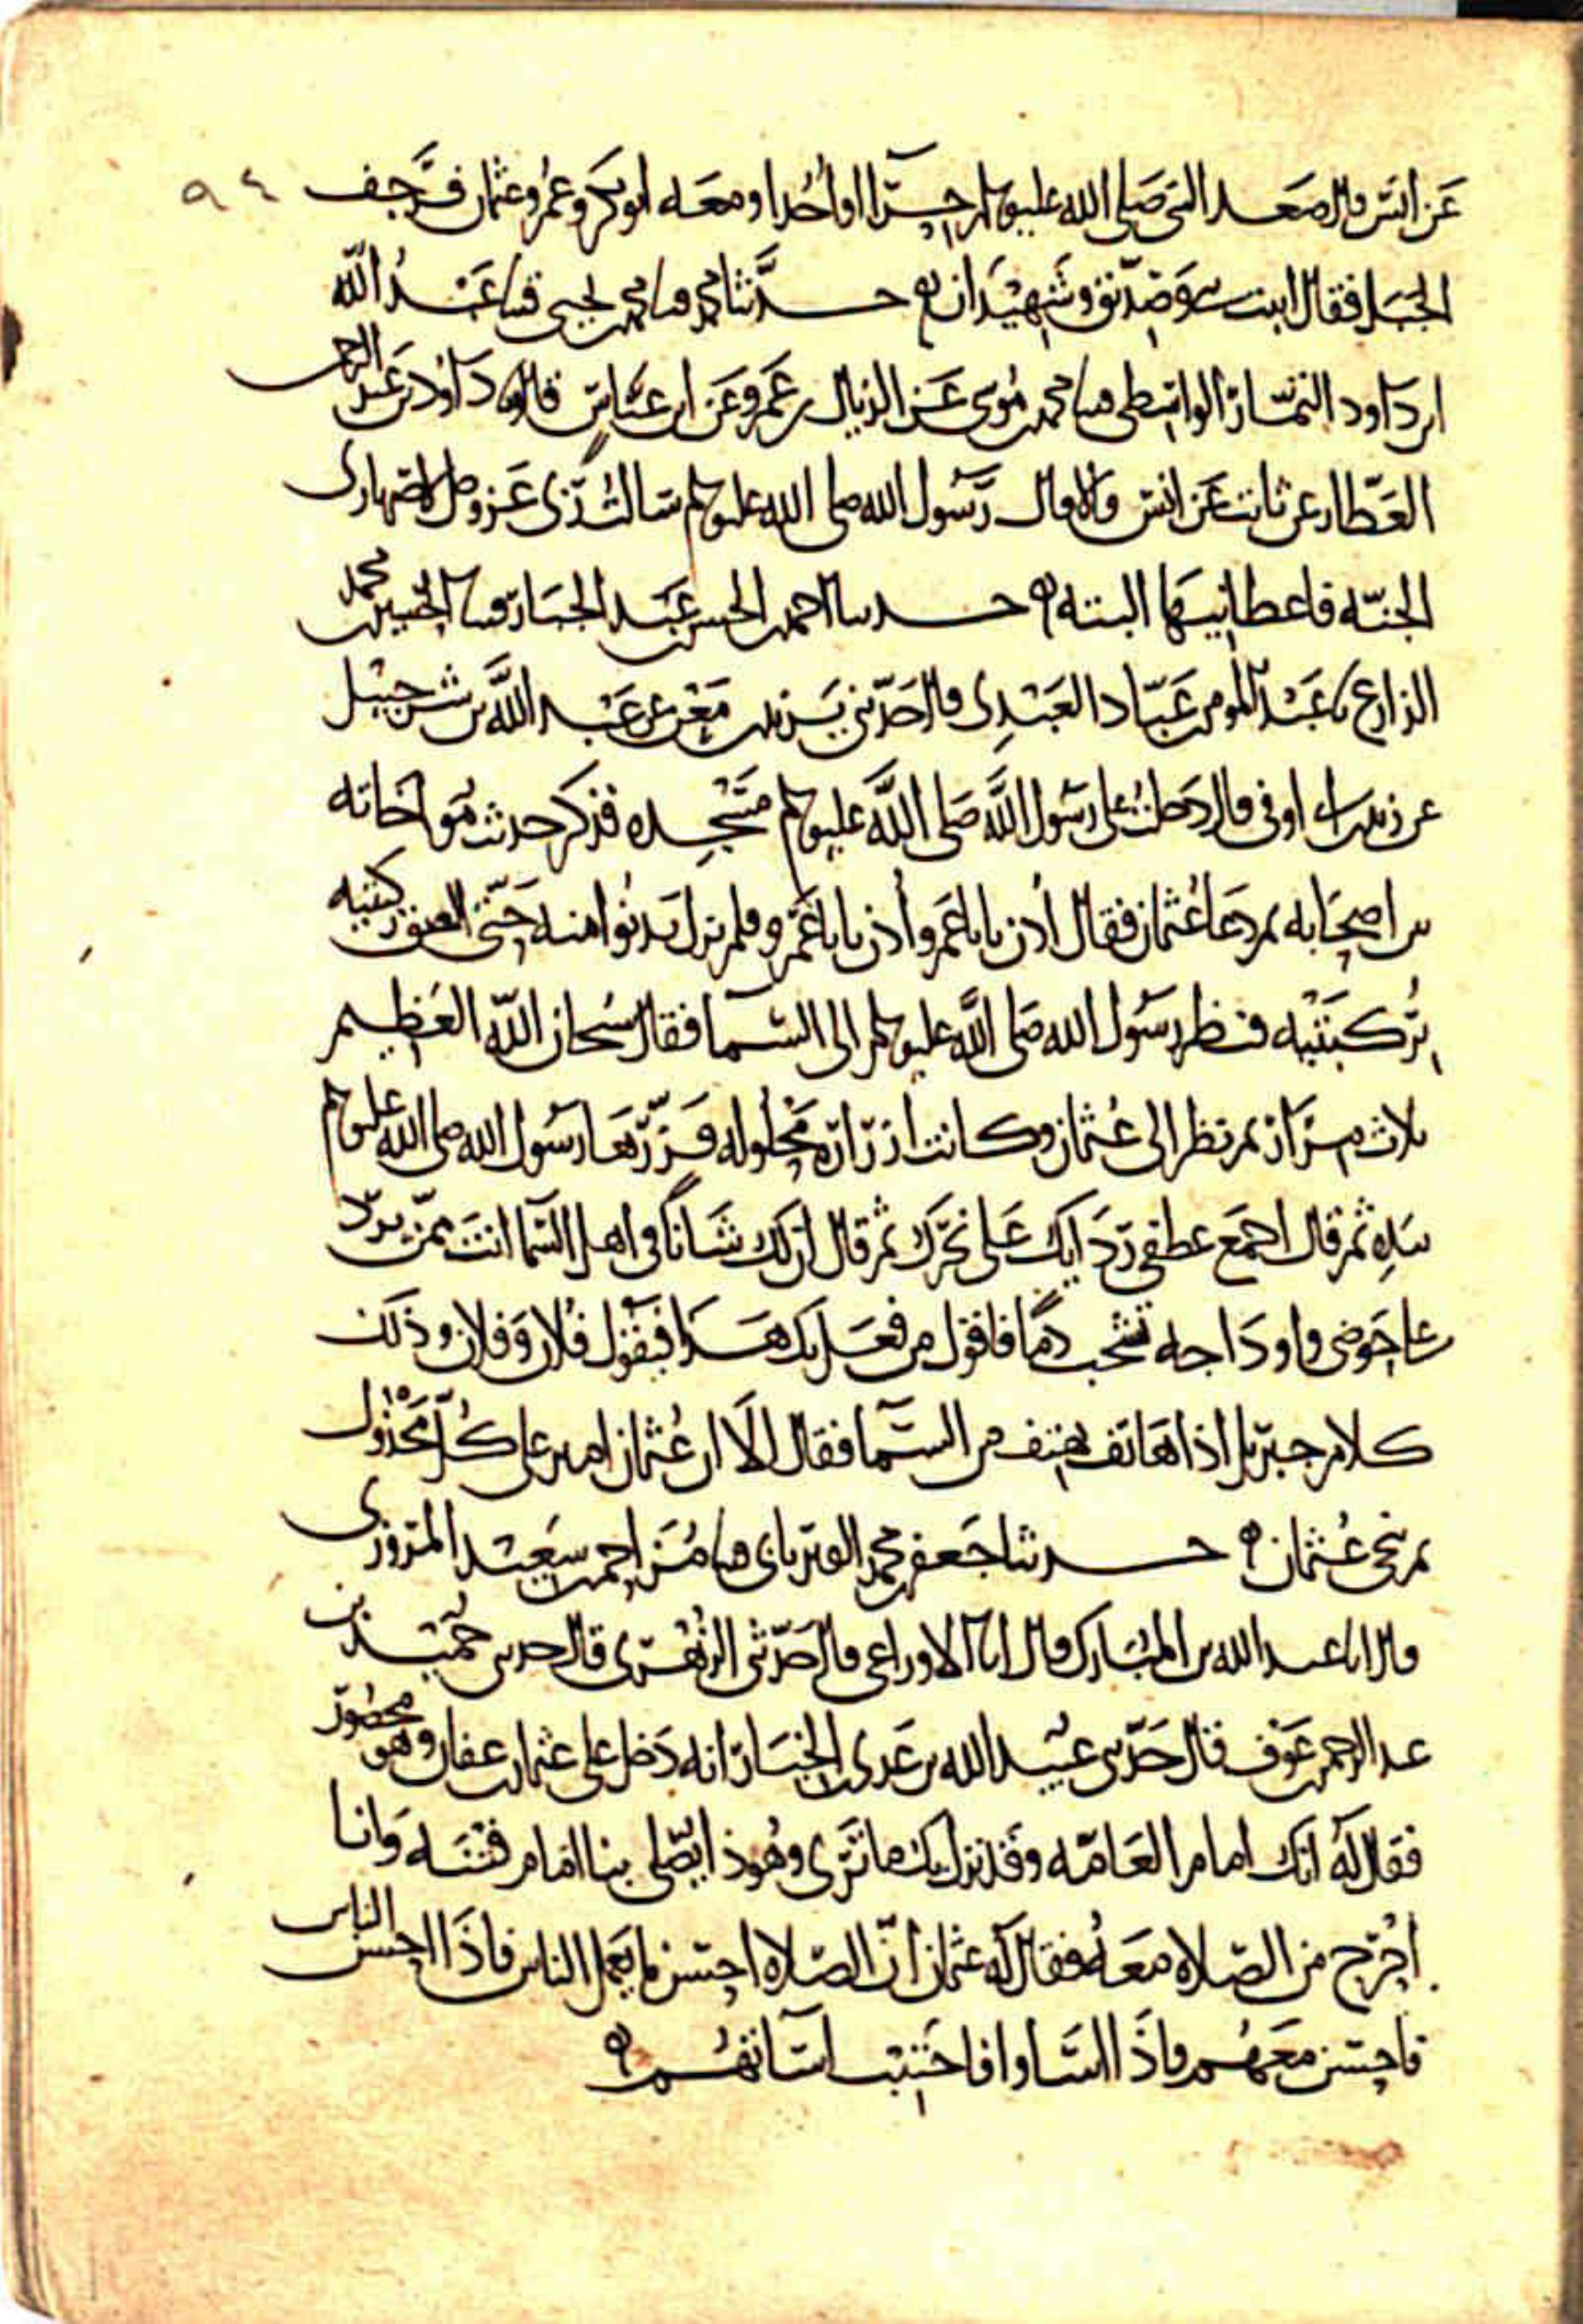 عن انس قال صعد النبي صلى الله عليه وسلم حرّاا او أُحُدا ومعه ابو بكر وعمر وعثمان فرجف ٩٤
الجبل فقال اثبت نبي وصديق وشهيدان حدثنا محمد بن محمد بن يحيى عبد الله
ابن داود التمار الواسطي محمد بن موسى عن الذيال بن عمرو عن ابن عباس قال داود بن عبد الرحمن
العطار عن ثابت عن انس قالا قال رسول الله صلى الله عليه وسلم سالت ربي عز وجل لاصهاري
الجنه فاعطانيها البته حدثنا احمد بن الحسن بن عبد الجبار الحسين بن محمد
الذارع عبد المومن بن عباد العبدي قال حدثني يزيد بن معن عن عبد الله بن شرحبيل
عن زيد بن ابي اوفى قال دخلت على رسول الله صلى الله عليه وسلم مسجده فذكر حديث مواخاته
بين اصحابه ثم دعا عثمان فقال أدن يابا عمرو أدن يابا عمرو فلم يزل يدنوا منه حتى الصق ركبتيه
بركبتيه فنظر رسول الله صلى الله عليه وسلم الى السما فقال سبحان الله العظيم
ثلاث مرار ثم نظر الى عثمان وكانت ازراره محلوله فزررها رسول الله صلى الله عليه وسلم
بيده ثم قال اجمع عطفي ردايك على نحرك ثم قال ان لك شانًا في اهل السما انت ممن يرد
على حوضي واوداجه تشخب دمًا فاقول من فعل بك هذا فيقول فلان وفلان وذلك
كلام جبريل اذا هاتف يهتف من السما فقال الا ان عثمان امير على كل مخذول
ثم نحى عثمان حدثنا جعفر بن محمد الفريابي احمد بن سعيد المروزي
قال انا عبد الله بن المبارك قال انا الاوزاعي قال حدثني الزهري قال حدثني حميد بن
عبد الرحمن بن عوف قال حدثني عبيد الله بن عدي بن الخيار انه دخل على عثمان بن عفان وهو محصور
فقال له انك امام العامه وقد نزل بك ما ترى وهوذا يصلي بنا امام فتنه وانا
احرج من الصلاه معه فقال له عثمان ان الصلاه احسن ما يعمل الناس فاذا احسن الناس
فاحسن معهم واذا اساوا فاجتنب اساتهم